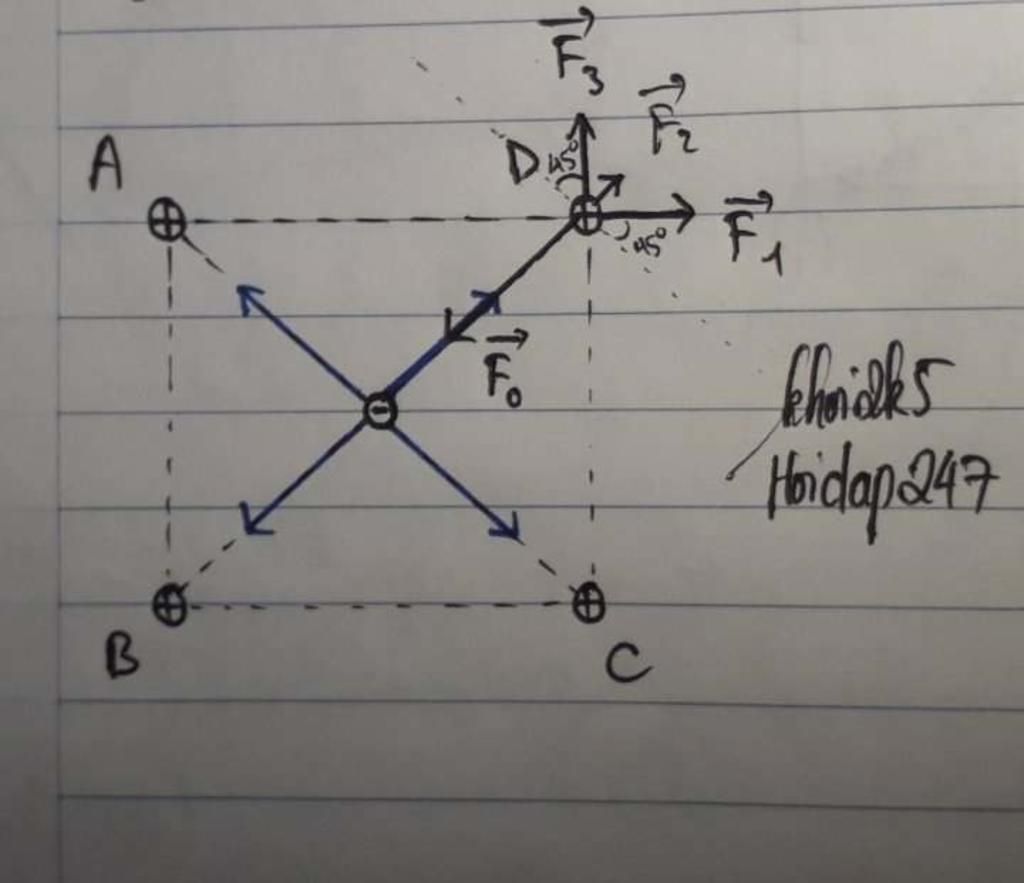 F₃
F₂
A
D 45°
F₁
45°
F₀
khoidk5
Hoidap247
B
C